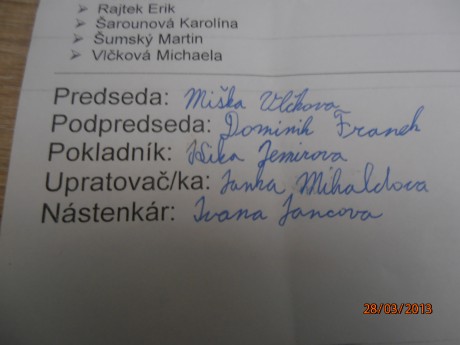 ➢ Rajtek Erik
➢ Šarounová Karolína
➢ Šumský Martin
➢ Vlčková Michaela
Predseda: Miška Vlčkova
Podpredseda: Dominik Franek
Pokladník:
Upratovač/ka: Janka Mihaldova
Nástenkár: Ivana Jancova
28/03/2013